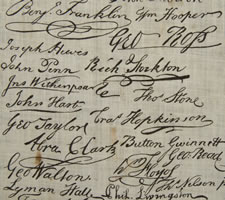 Benj. Franklin Wm Hooper
Geo Ross
Joseph Hewes
John Penn Richd Stockton
Jno Witherspoon
Thos Stone
John Hart
Geo Taylor Fras Hopkinson
Abra Clark Button Gwinnett
Geo Read
Geo Walton
Wm Floyd
Lyman Hall Thos Nelson
Phil. Livingston